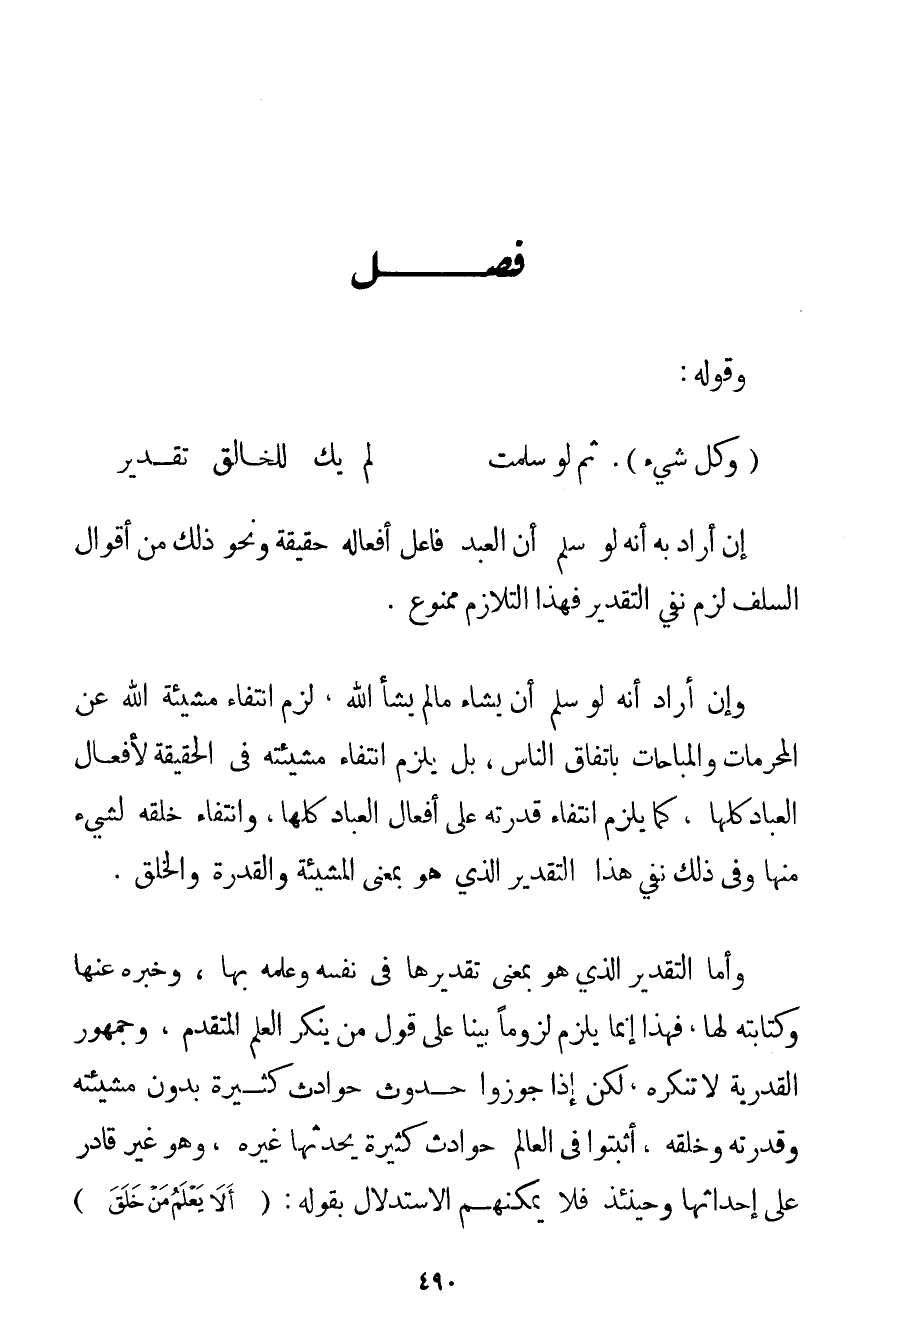 فصل
وقوله :
( وكل شيء ) . ثم لو سلمت لم يك للخالق تقدير
إن أراد به أنه لو سلم أن العبد فاعل أفعاله حقيقة ونحو ذلك من أقوال
السلف لزم نفي التقدير فهذا التلازم ممنوع .
وإن أراد أنه لو سلم أن يشاء مالم يشأ الله ، لزم انتفاء مشيئة الله عن
المحرمات والمباحات باتفاق الناس ، بل يلزم انتفاء مشيئته فى الحقيقة لأفعال
العباد كلها ، كما يلزم انتفاء قدرته على أفعال العباد كلها ، وانتفاء خلقه لشيء
منها وفى ذلك نفي هذا التقدير الذي هو بمعنى المشيئة والقدرة والخلق .
وأما التقدير الذي هو بمعنى تقديرها فى نفسه وعلمه بها ، وخبره عنها
وكتابته لها ، فهذا إنما يلزم لزوماً بينا على قول من ينكر العلم المتقدم ، وجمهور
القدرية لا تنكره ، لكن إذا جوزوا حدوث حوادث كثيرة بدون مشيئته
وقدرته وخلقه ، أثبتوا فى العالم حوادث كثيرة يحدثها غيره ، وهو غير قادر
على إحداثها وحينئذ فلا يمكنهم الاستدلال بقوله : ( أَلَا يَعْلَمُ مَنْ خَلَقَ )
٤٩٠